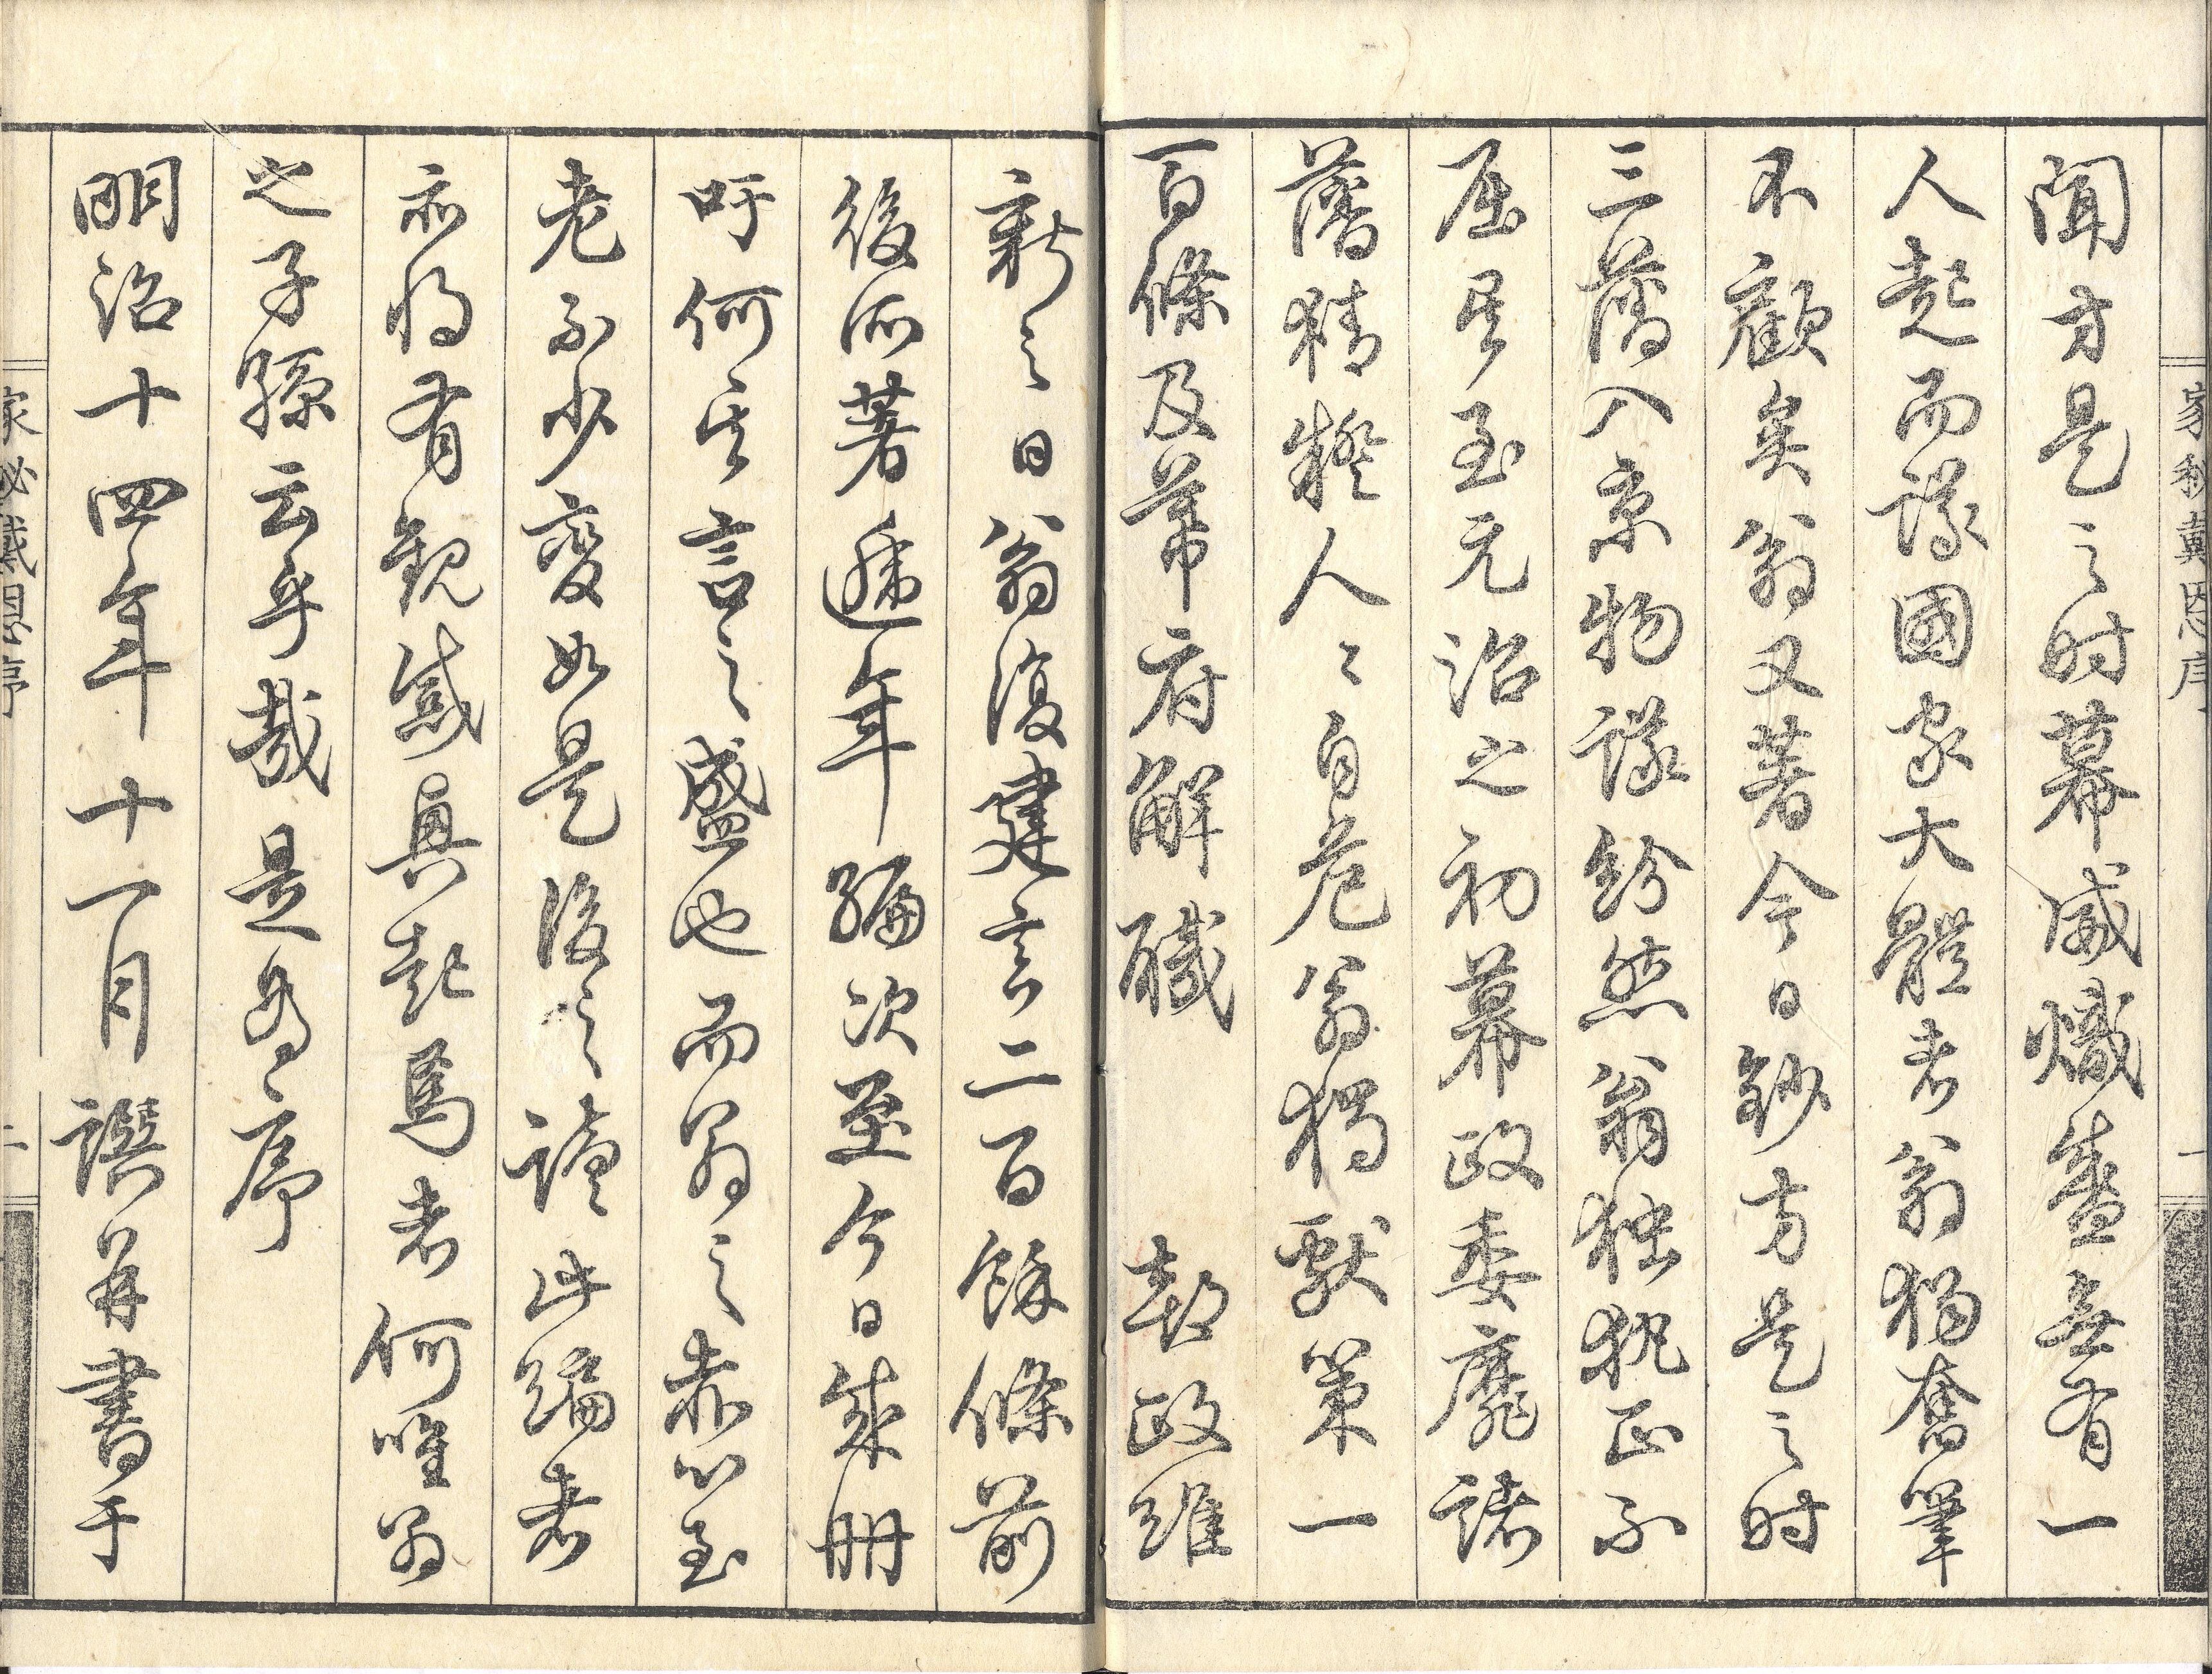 家秘戴恩序
一
聞方是之時幕威熾盛無有一
人起而議國家大體者翁獨奮筆
不顧矣翁又著今日鈔方是之時
三藩入京物議紛然翁独執正不
屈矣至元治之初幕政委靡諸
藩猜疑人々自危翁獨献策一
百條及幕府解職　朝政維
新之日翁復建言二百餘條前
後所著逐年編次至今日成冊
吁何其言之盛也而翁之赤心至
老不少変如是後之讀此編者
亦将有観感興起焉者何唯翁
之子孫云乎哉是為序
明治十四年十一月譔并書于
家秘戴恩序
二